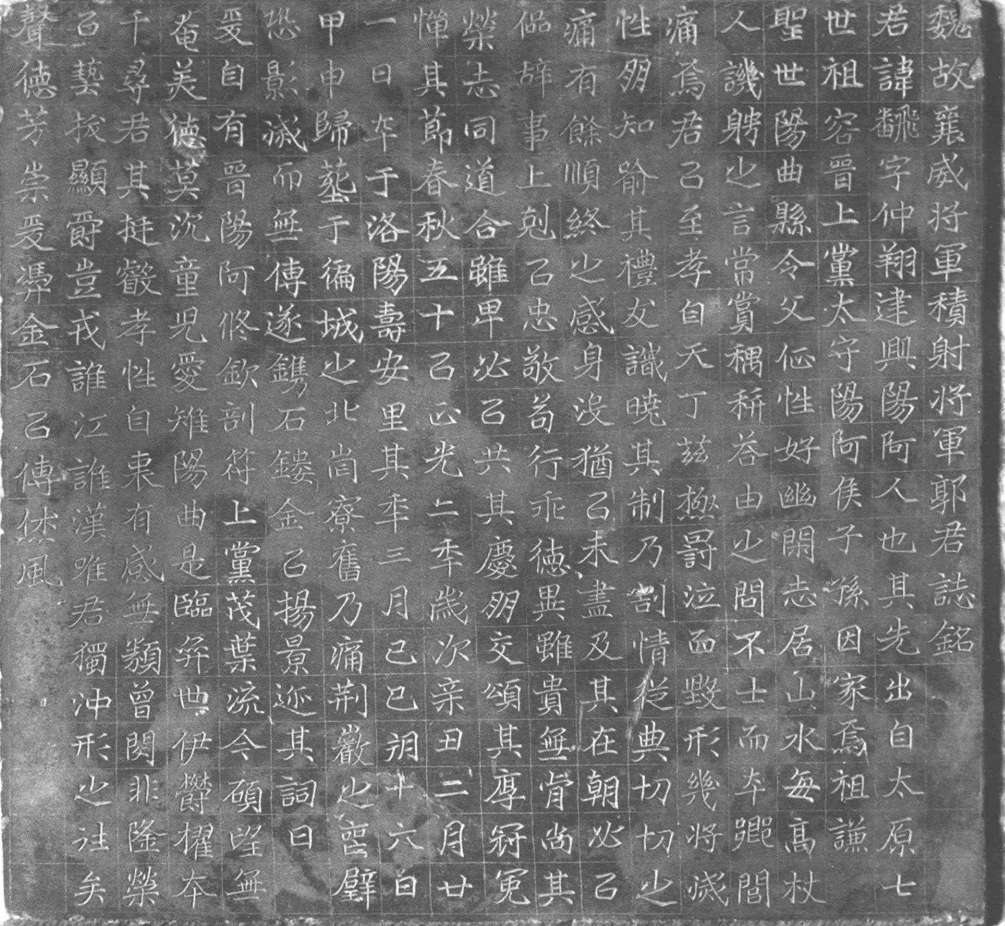 魏故襄威将軍積射将軍郭君誌銘
君諱翻字仲翔建興陽阿人也其先出自太原七
世祖容晉上黨太守陽阿侯子孫因家焉祖謙
聖世陽曲縣令父伾性好幽閑志居山水每髙杖
人譏躬之言常賞稱荅由之問不士而卒鄉閭
痛焉君已至孝自天丁兹極罰泣而毀形幾将滅
性朋知喻其禮友識曉其制乃割情従典切切之
痛有餘順終之感身沒猶己未盡及其在朝必己
侶辝事上剋己忠敬苟行乖德異雖貴無肯尚其
榮志同道合雖卑必己共其慶朋交頌其厚冠冕
憚其節春秋五十己正光二秊歲次亲丑二月廿
一日卒于洛陽壽安里其秊三月己巳朔十六日
甲申歸塟于徧城之北崗寮舊乃痛荆巖之喪璧
恐影滅而無傳遂鐫石鏤金己揚景迹其詞曰
爰自有晉陽阿俢欽剖苻上黨茂葉流今碩望無
奄美德莫沉童児愛雉陽曲是臨弈世伊欝櫂夲
千尋君其挺叡孝性自衷有感無類曾閔非隆榮
己藝拔顯爵豈戎誰江誰漢唯君獨沖形之往矣
聲德芳崇爰憑金石己傳烋風